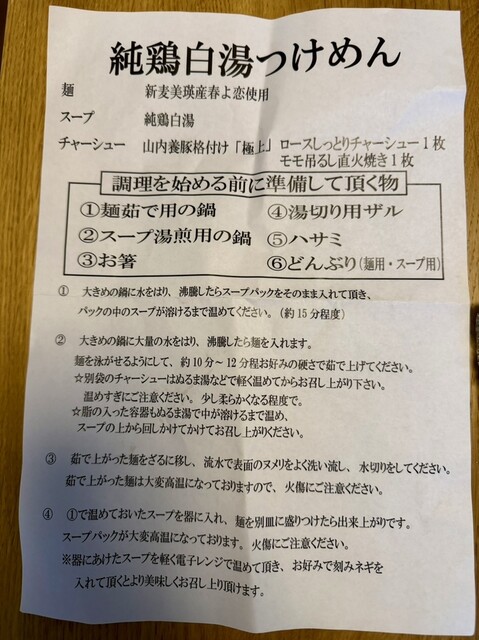 純鶏白湯つけめん
麺 新麦美瑛産春よ恋使用
スープ 純鶏白湯
チャーシュー 山内養豚格付け「極上」 ロースしっとりチャーシュー1枚
モモ吊るし直火焼き1枚
調理を始める前に準備して頂く物
①麺茹で用の鍋 ④湯切り用ザル
②スープ湯煎用の鍋 ⑤ハサミ
③お箸 ⑥どんぶり(麺用・スープ用)
① 大きめの鍋に水をはり、沸騰したらスープパックをそのまま入れて頂き、
パックの中のスープが溶けるまで温めてください。(約15分程度)
② 大きめの鍋に大量の水をはり、沸騰したら麺を入れます。
麺を泳がせるようにして、約10分~12分程お好みの硬さで茹で上げてください。
☆別袋のチャーシューはぬるま湯などで軽く温めてからお召し上がり下さい。
温めすぎにご注意ください。少し柔らかくなる程度で。
☆脂の入った容器もぬるま湯で中が溶けるまで温め、
スープの上から回しかけてかけてお召し上がりください。
③ 茹で上がった麺をざるに移し、流水で表面のヌメリをよく洗い流し、水切りをしてください。
茹で上がった麺は大変高温になっておりますので、火傷にご注意ください。
④ ①で温めておいたスープを器に入れ、麺を別皿に盛りつけたら出来上がりです。
スープパックが大変高温になっております。火傷にご注意ください。
※器にあけたスープを軽く電子レンジで温めて頂き、お好みで刻みネギを
入れて頂くとより美味しくお召し上り頂けます。